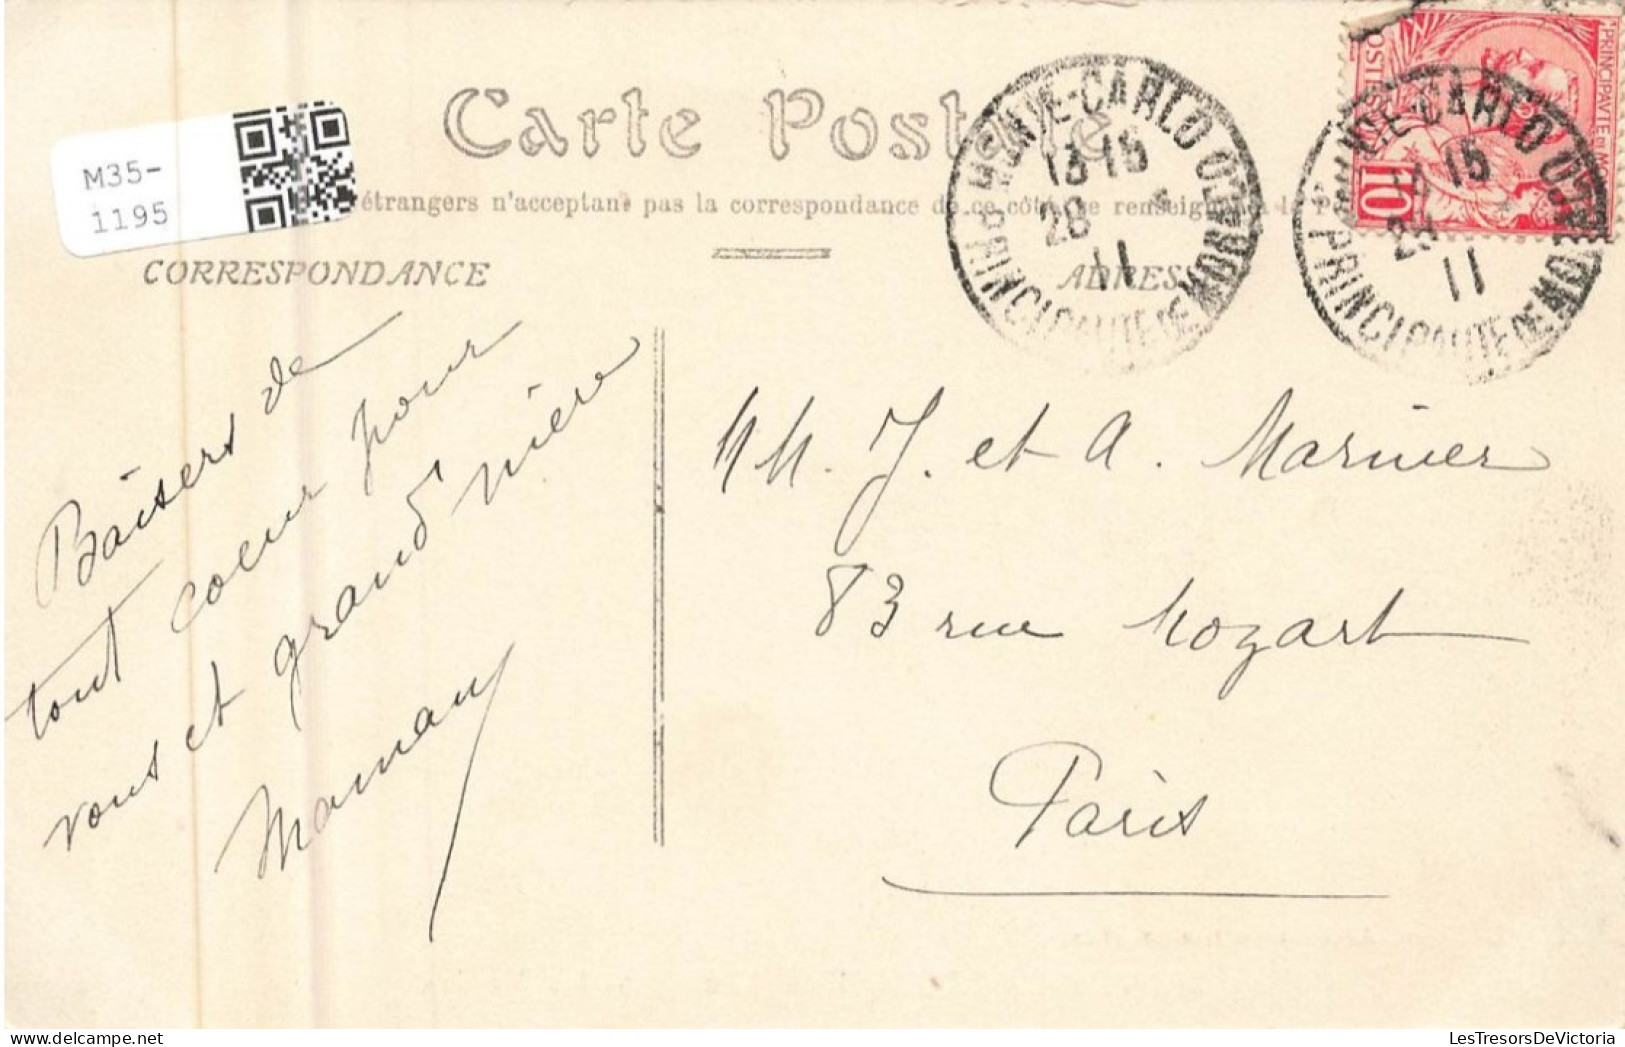 Carte Postale
étrangers n'acceptant pas la correspondance de ce côté se renseigner à la
M35-
1195
CORRESPONDANCE
ADRESSE
MONTE-CARLO
13 15
28
11
PRINCIPAUTÉ DE MONACO
MONTE-CARLO
15
11
PRINCIPAUTÉ DE MONACO
PRINCIPAUTÉ
10
Baisers de
tout coeur pour
vous et grand'mère
Maman
MM. J. et A. Marinier
83 rue Mozart
Paris
LesTresorsDeVictoria